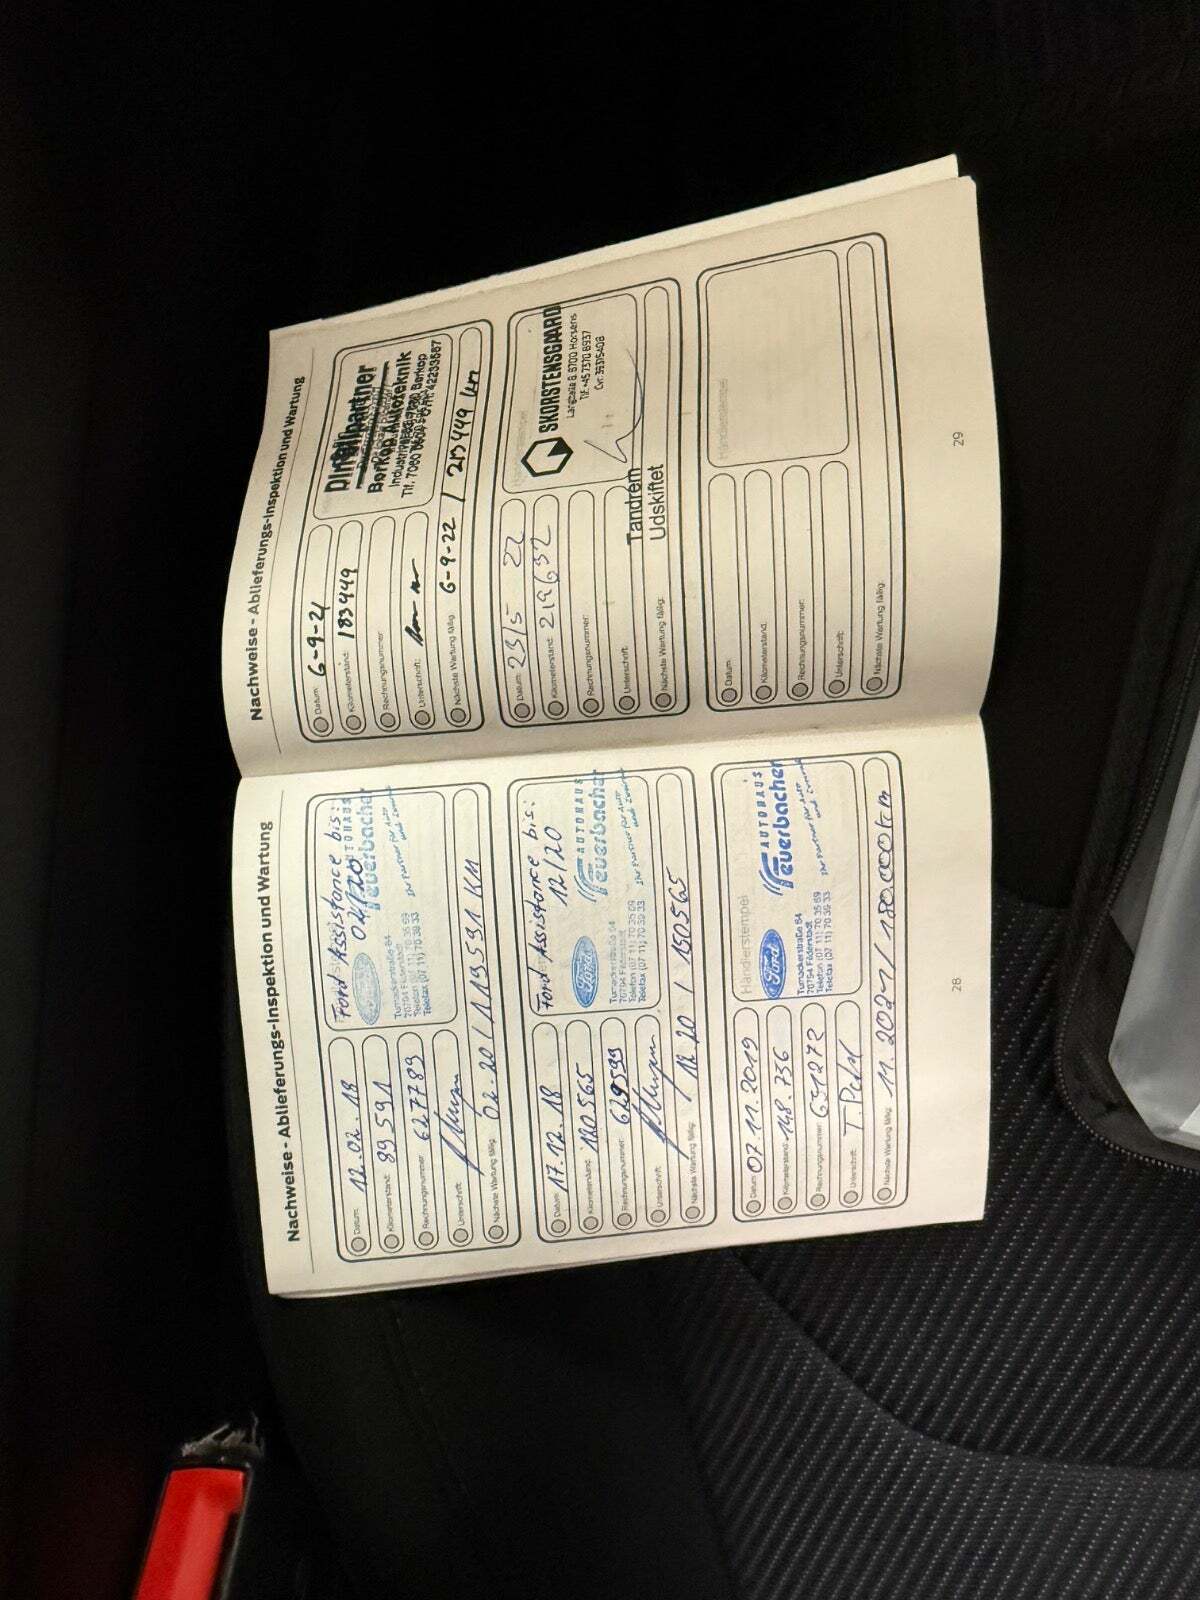 Nachweise - Ablieferungs-Inspektion und Wartung
Datum: 12.02.18
Kilometerstand: 89 591
Rechnungsnummer: 627789
Unterschrift:
Nächste Wartung fällig: 02.20 / 119591 KM
Ford Assistance bis:
02/20
AUTOHAUS
Feuerbacher
Ihr Partner für Auto
und Zweirad
70794 Filderstadt
Telefon (07 11) 70 35 69
Telefax (07 11) 70 39 33
Datum: 17.12.18
Kilometerstand: 120565
Rechnungsnummer: 629599
Unterschrift:
Nächste Wartung fällig: 12.20 / 150565
Ford Assistance bis:
12/20
Ford
AUTOHAUS
Feuerbacher
Ihr Partner für Auto
und Zweirad
70794 Filderstadt
Telefon (07 11) 70 35 69
Telefax (07 11) 70 39 33
Datum: 07.11.2019
Kilometerstand: 148.736
Rechnungsnummer: 651272
Unterschrift:
Nächste Wartung fällig: 11.2021 / 180.000km
Händlerstempel
Ford
AUTOHAUS
Feuerbacher
Ihr Partner für Auto
und Zweirad
70794 Filderstadt
Telefon (07 11) 70 35 69
Telefax (07 11) 70 39 33
28
Nachweise - Ablieferungs-Inspektion und Wartung
Datum: 6-9-21
Kilometerstand: 183449
Rechnungsnummer:
Unterschrift:
Nächste Wartung fällig: 6-9-22 / 213449 km
Din Bilpartner
Børkop Autoteknik
7080 Børkop
Tlf. 7060
42233567
Datum: 23/5 22
Kilometerstand: 219632
Rechnungsnummer:
Unterschrift:
Nächste Wartung fällig:
SKORSTENSGAARD
8700 Horsens
Tlf: +45 7370 8937
Tandrem
Udskiftet
Datum:
Kilometerstand:
Rechnungsnummer:
Unterschrift:
Nächste Wartung fällig:
Händlerstempel
29